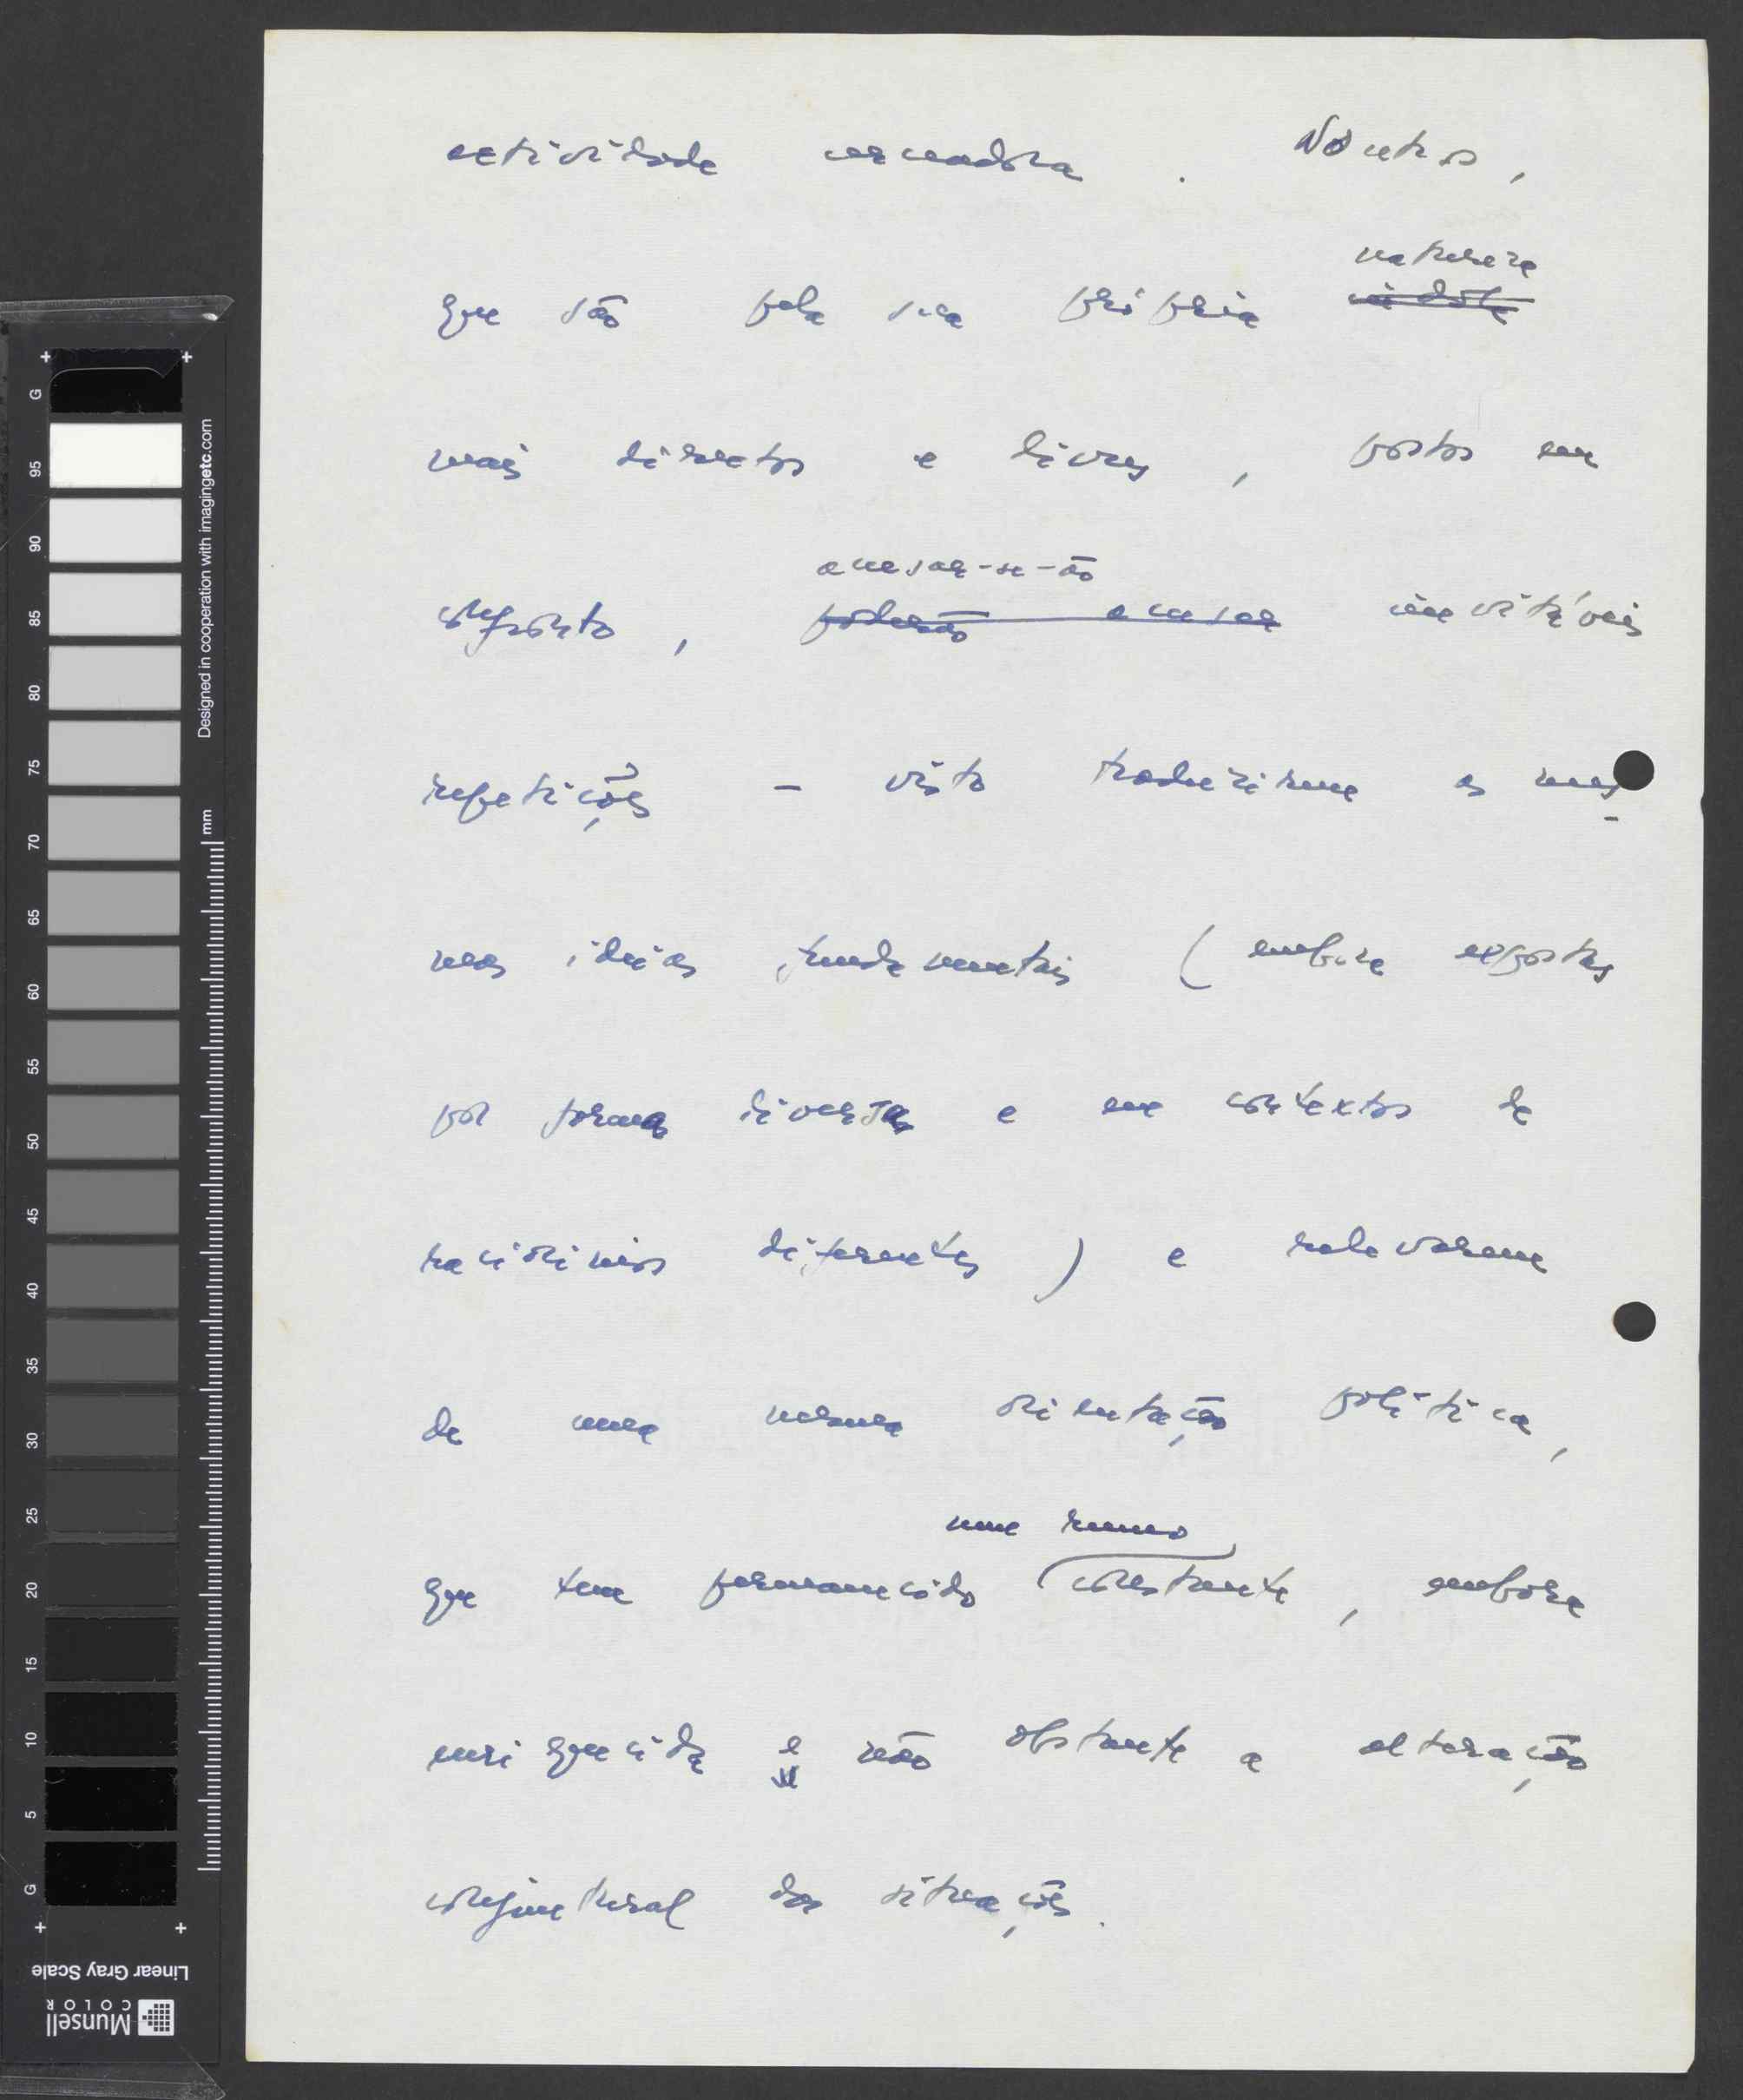 actividade criadora. Noutros,
natureza
que são pela sua própria índole
mais directos e livres, postos em
acusar-se-ão
confronto, poderão acusar inevitáveis
repetições – visto traduzirem as mes-
mas ideias fundamentais (embora expostas
por formas diversas e em contextos de
raciocínios diferentes) e relevarem
de uma mesma orientação política,
num rumo
que tem permanecido constante, embora
enriquecida e não obstante a alteração
conjuntural das situações.
G 95 90 85 80 75 70 65 60 55 50 45 40 35 30 25 20 15 10 5 G
Designed in cooperation with imagingetc.com
mm
Linear Gray Scale
Munsell
COLOR